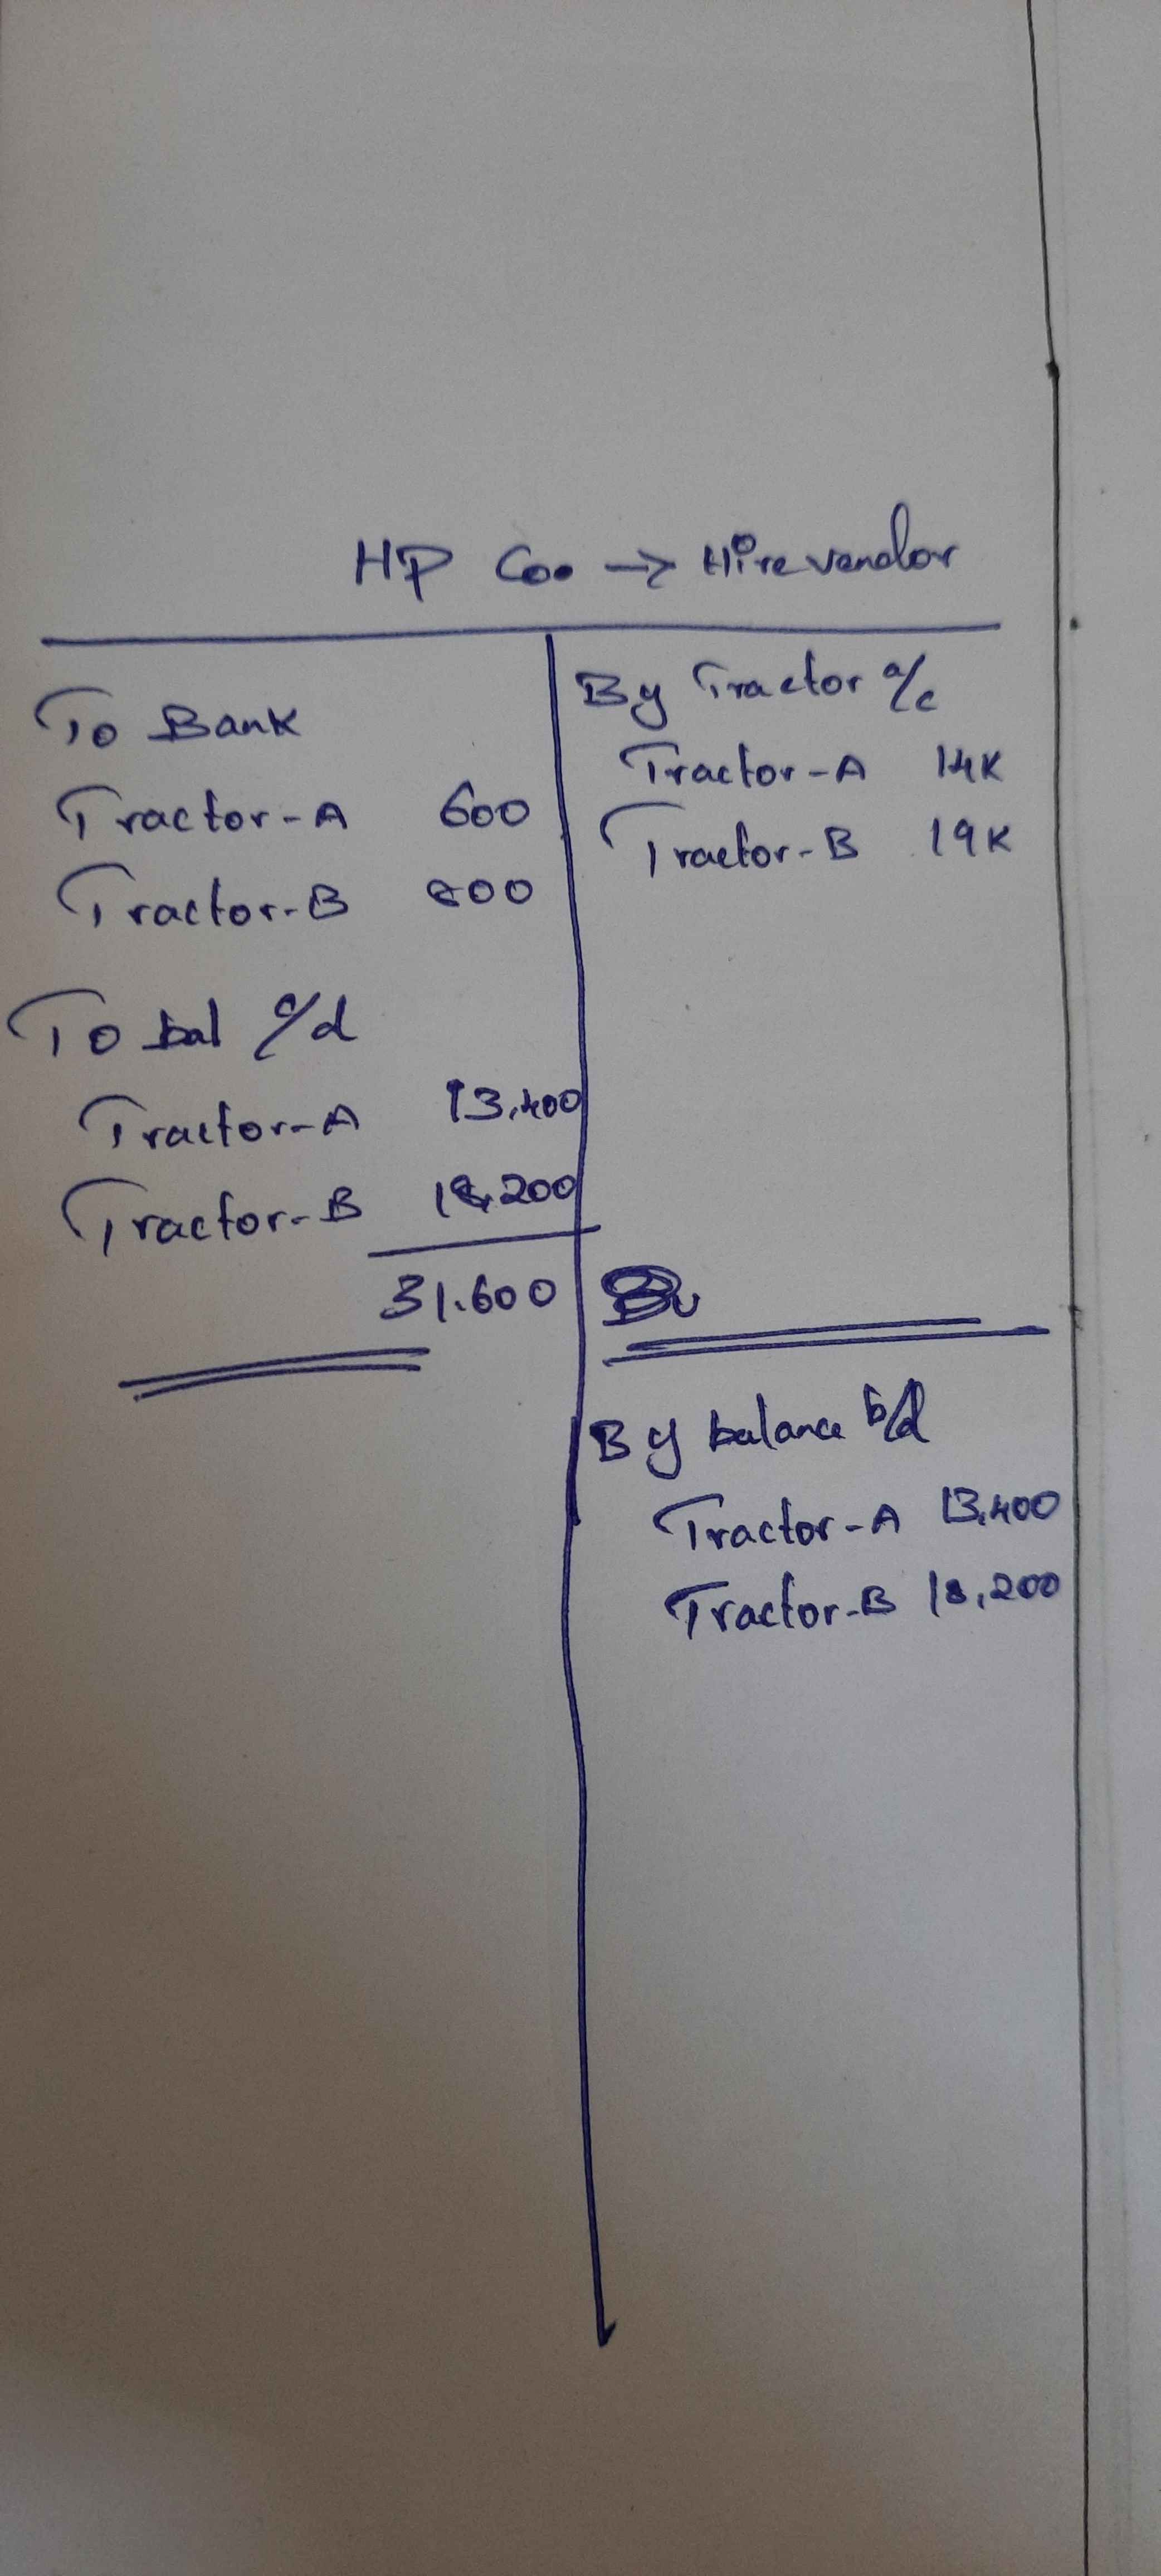 HP Co. → Hire vendor
To Bank
Tractor-A 600
Tractor-B 800
To bal c/d
Tractor-A 13,400
Tractor-B 18,200
31.600
By Tractor a/c
Tractor-A 14K
Tractor-B 19K
By balance b/d
Tractor-A 13,400
Tractor-B 18,200